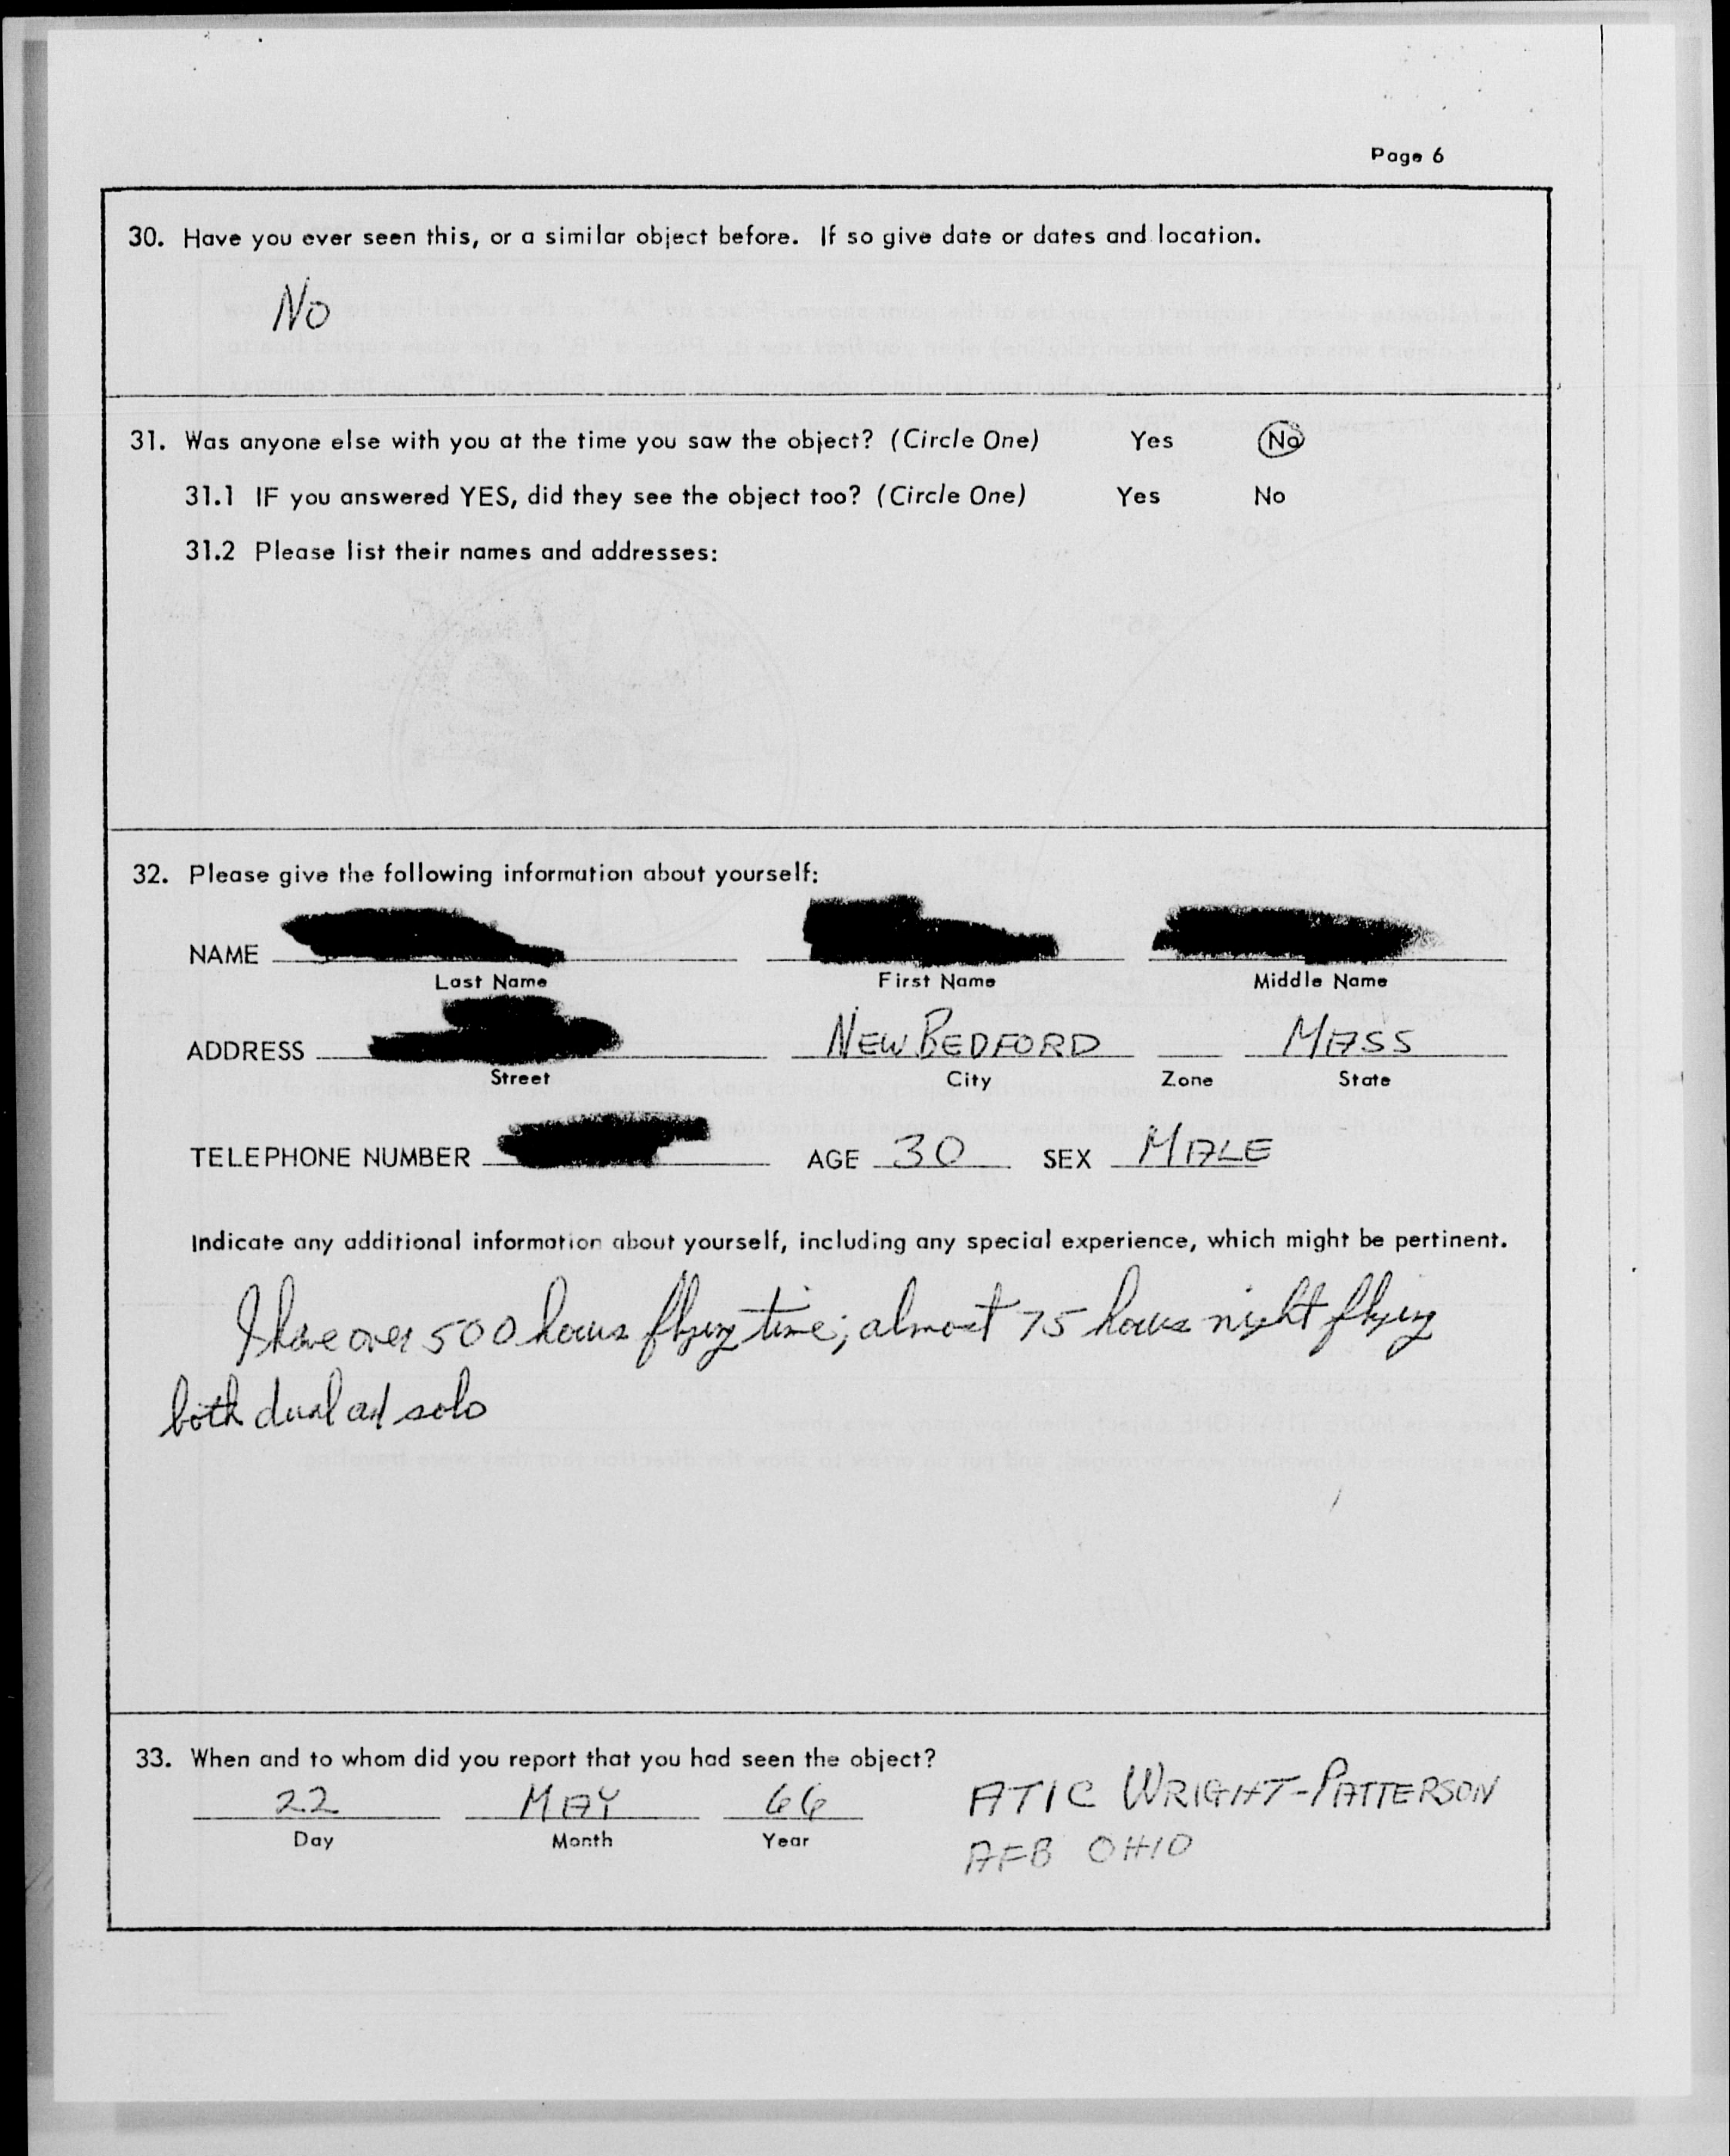 Page 6
30. Have you ever seen this, or a similar object before. If so give date or dates and location.
No
31. Was anyone else with you at the time you saw the object? (Circle One) Yes No
31.1 IF you answered YES, did they see the object too? (Circle One) Yes No
31.2 Please list their names and addresses:
32. Please give the following information about yourself:
NAME
Last Name First Name Middle Name
ADDRESS NEW BEDFORD MASS
Street City Zone State
TELEPHONE NUMBER AGE 30 SEX MALE
Indicate any additional information about yourself, including any special experience, which might be pertinent.
I have over 500 hours flying time; almost 75 hours night flying
both dual and solo
33. When and to whom did you report that you had seen the object?
22 MAY 66 ATIC WRIGHT-PATTERSON
Day Month Year AFB OHIO